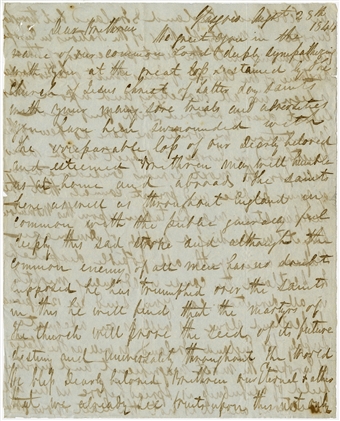 Glasgow Sept 25th
1844
Dear Brethren
We greet you in the
name of our common Lord & deeply sympathize
with you at the great loss sustained by the
Church of Jesus Christ of Latter day Saints
with your many sore trials and adversities
you have been surrounded with
the irreparable loss of our dearly beloved
and esteemed Brethren
us at home and abroad the Saints
here as well as throughout England in
common with the public generously feel
deeply this sad stroke and although the
common enemy of all men has no doubt
supposed he has triumphed over the Saints
in this he will find that the martyrs of
the Church will prove the seed of its future
and universal throughout the World
We bless dearly beloved Brethren our Eternal Father
that we already see fruit upon this